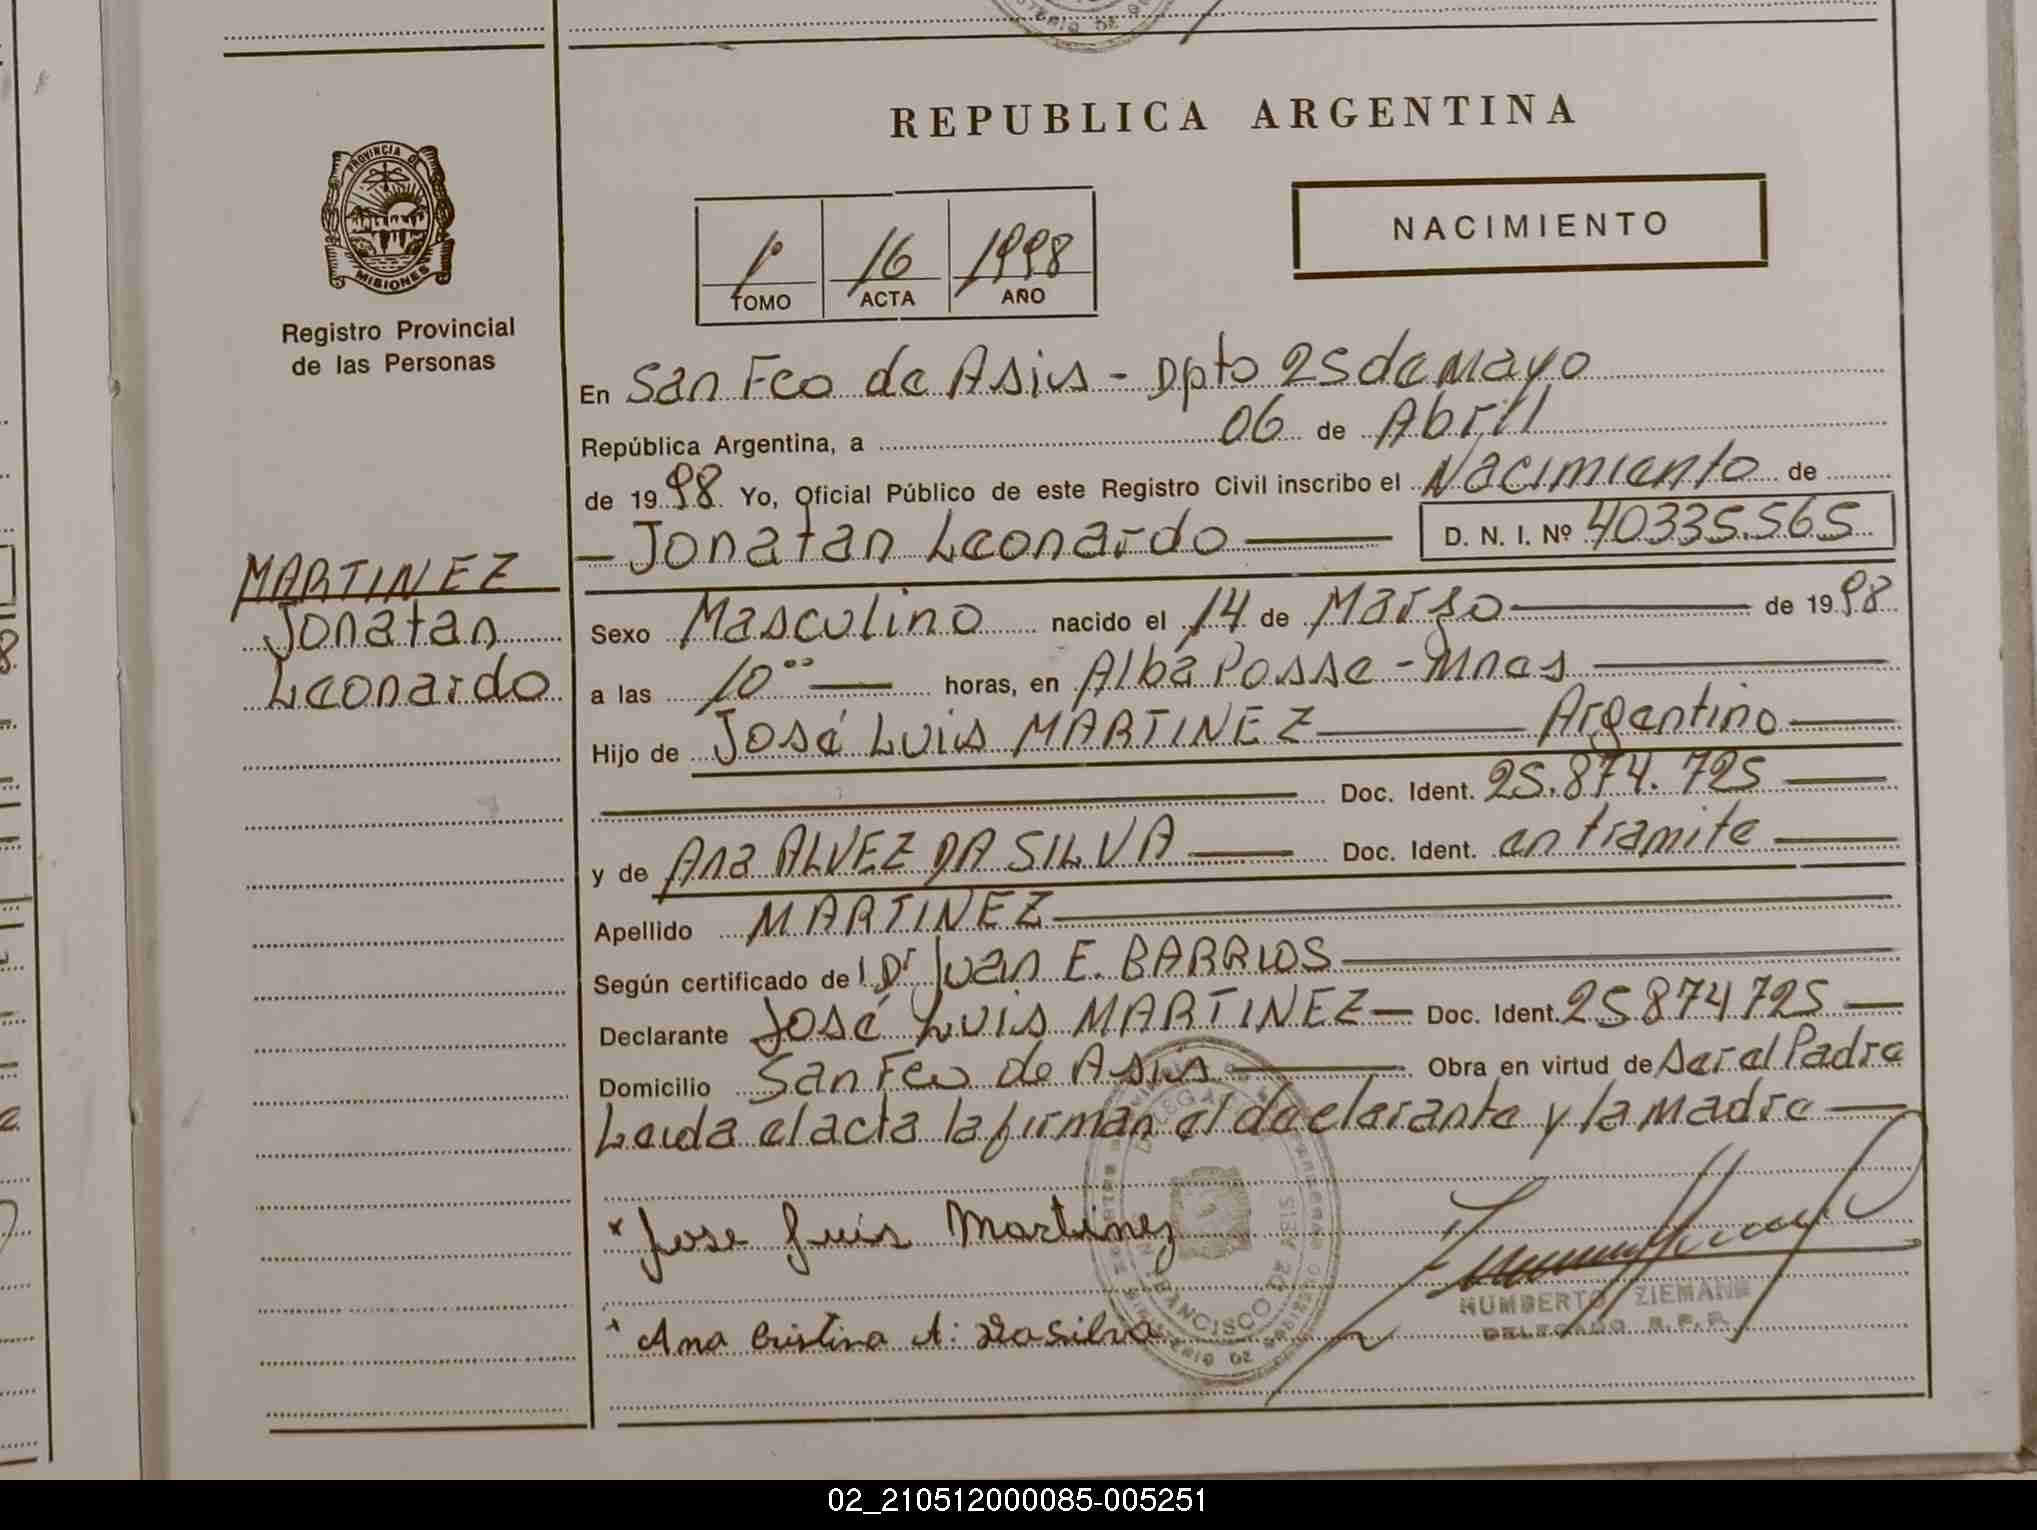 REPUBLICA ARGENTINA
PROVINCIA DE
MISIONES
Registro Provincial
de las Personas
1º 16 1998
TOMO ACTA AÑO
NACIMIENTO
En San Fco de Asis - Dpto 25 de Mayo
República Argentina, a 06 de Abril
de 1998 Yo, Oficial Público de este Registro Civil inscribo el Nacimiento de
Jonatan Leonardo D. N. I. Nº 40335.565
MARTINEZ
Jonatan
Leonardo
Sexo Masculino nacido el 14 de Marzo de 1998
a las 10 ºº horas, en Alba Posse - Mnes
Hijo de José Luis MARTINEZ Argentino
Doc. Ident. 25.874.725
y de Ana ALVEZ DA SILVA Doc. Ident. en tramite
Apellido MARTINEZ
Según certificado de Dr Juan E. BARRIOS
Declarante José Luis MARTINEZ Doc. Ident. 25874725
Domicilio San Fco de Asis Obra en virtud de Ser el Padre
Leida el acta la firman el declarante y la madre
x Jose Luis Martinez
HUMBERTO ZIEMANN
DELEGADO R.P.P.
x Ana Cristina A: Dasilva
02_210512000085-005251